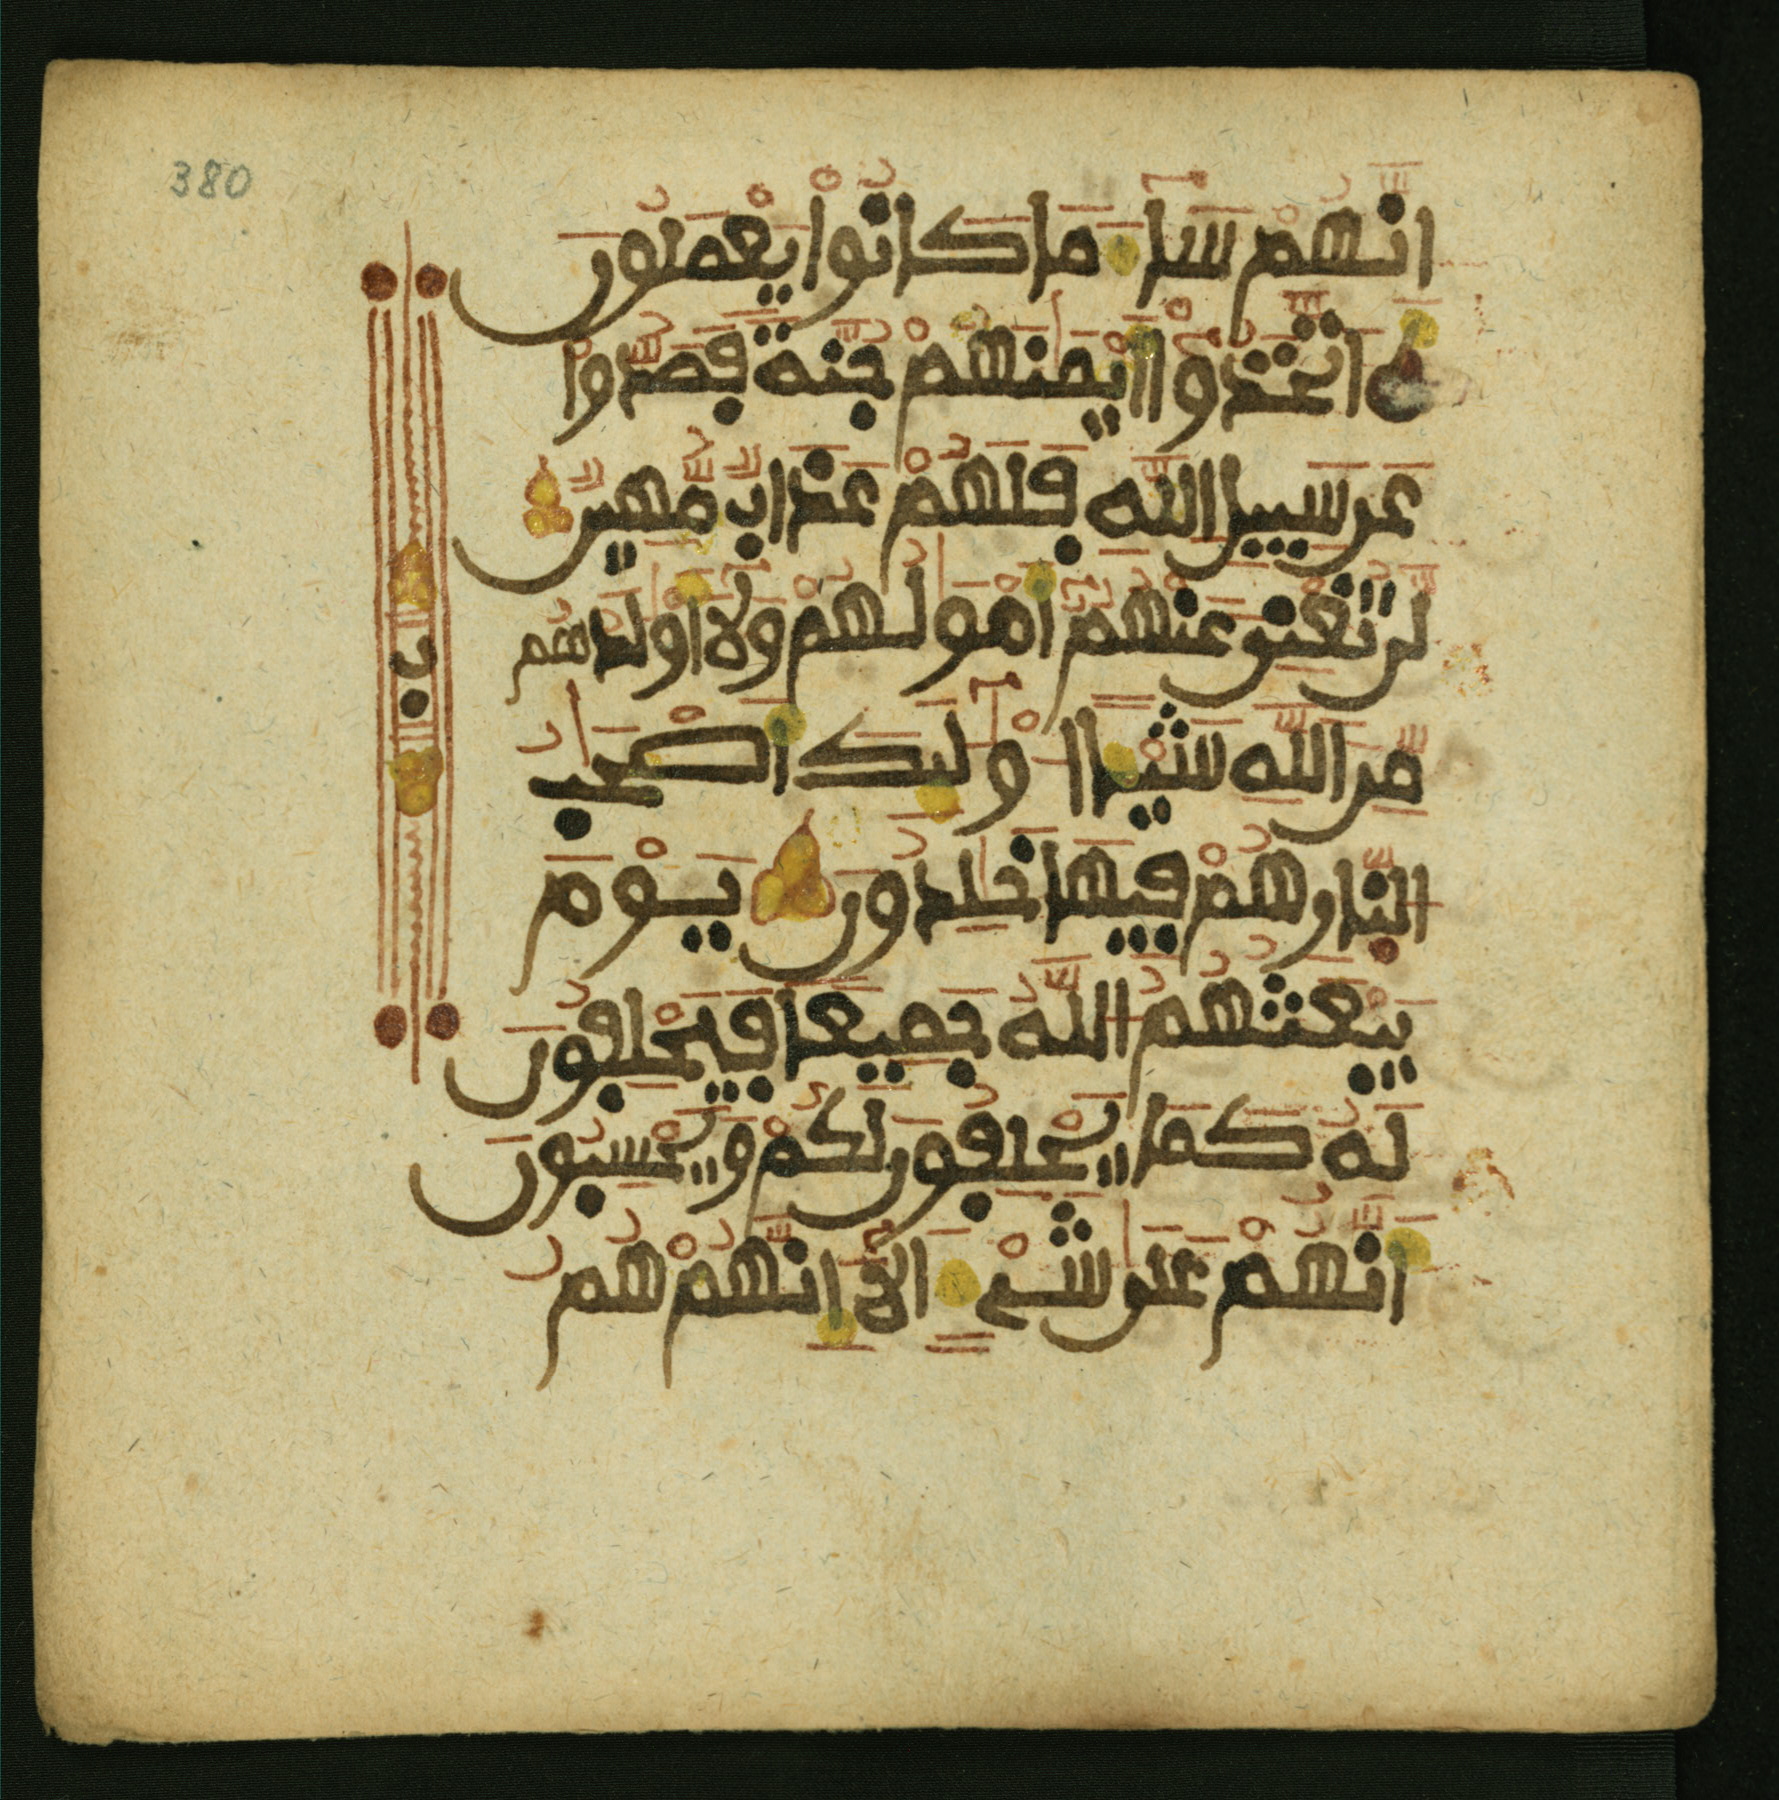 380
إِنَّهُمْ سَآءَ مَا كَانُواْ يَعْمَلُونَ
اَتَّخَذُوٓاْ أَيْمَٰنَهُمْ جُنَّةً فَصَدُّواْ
عَن سَبِيلِ اللَّهِ فَلَهُمْ عَذَابٌ مُّهِينٌ
لَّن تُغْنِىَ عَنْهُمُۥٓ أَمْوَٰلُهُمْ وَلَآ أَوْلَٰدُهُم
مِّنَ اللَّهِ شَيْـًٔا اوْلَٰٓئِكَ أَصْحَٰبُ
النَّارِ هُمْ فِيهَا خَٰلِدُونَ يَوْمَ
يَبْعَثُهُمُ اللَّهُ جَمِيعًا فَيَحْلِفُونَ
لَهُۥ كَمَا يَحْلِفُونَ لَكُمْ وَيَحْسِبُونَ
أَنَّهُمْ عَلَىٰ شَىْءٍ الَآ إِنَّهُمْ هُمُ